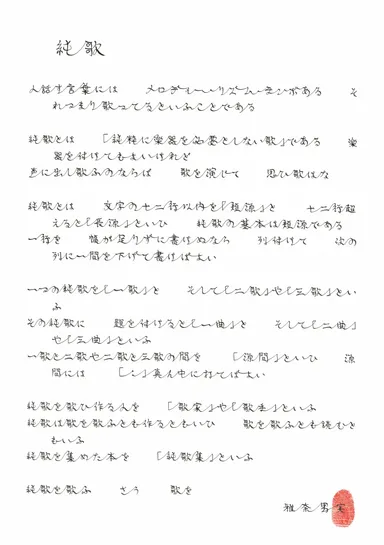 純歌
人話す言葉には　メロディー・リズム・テンポがある　そ
れつまり歌ってるといふことである
純歌とは　「純粋に楽器を必要としない歌」である　楽
器を付けてもよいけれど
声に出し歌ふのならば　歌を演じて　思ひ歌はな
純歌とは　文字の七二行以内を「短源」と　七二行超
えると「長源」といひ　純歌の基本は短源である
一行を　幅が足りずに書けぬなら　列付けて　次の
列に一間を下げて書けばよい
一つの純歌を「一歌」と　そして「二歌」や「三歌」とい
ふ
その純歌に　題を付けると「一曲」と　そして「二曲」
や「三曲」といふ
一歌と二歌や二歌と三歌の間を　「源間」といひ　源
間には　「・」真ん中に打てばよい
純歌を歌ひ作る人を　「歌実」や「歌圭」といふ
純歌は歌を歌ふとも作るともいひ　歌を歌ふとも読むと
もいふ
純歌を集めた本を　「純歌集」といふ
純歌を歌ふ　さう　歌を
雅奈男実